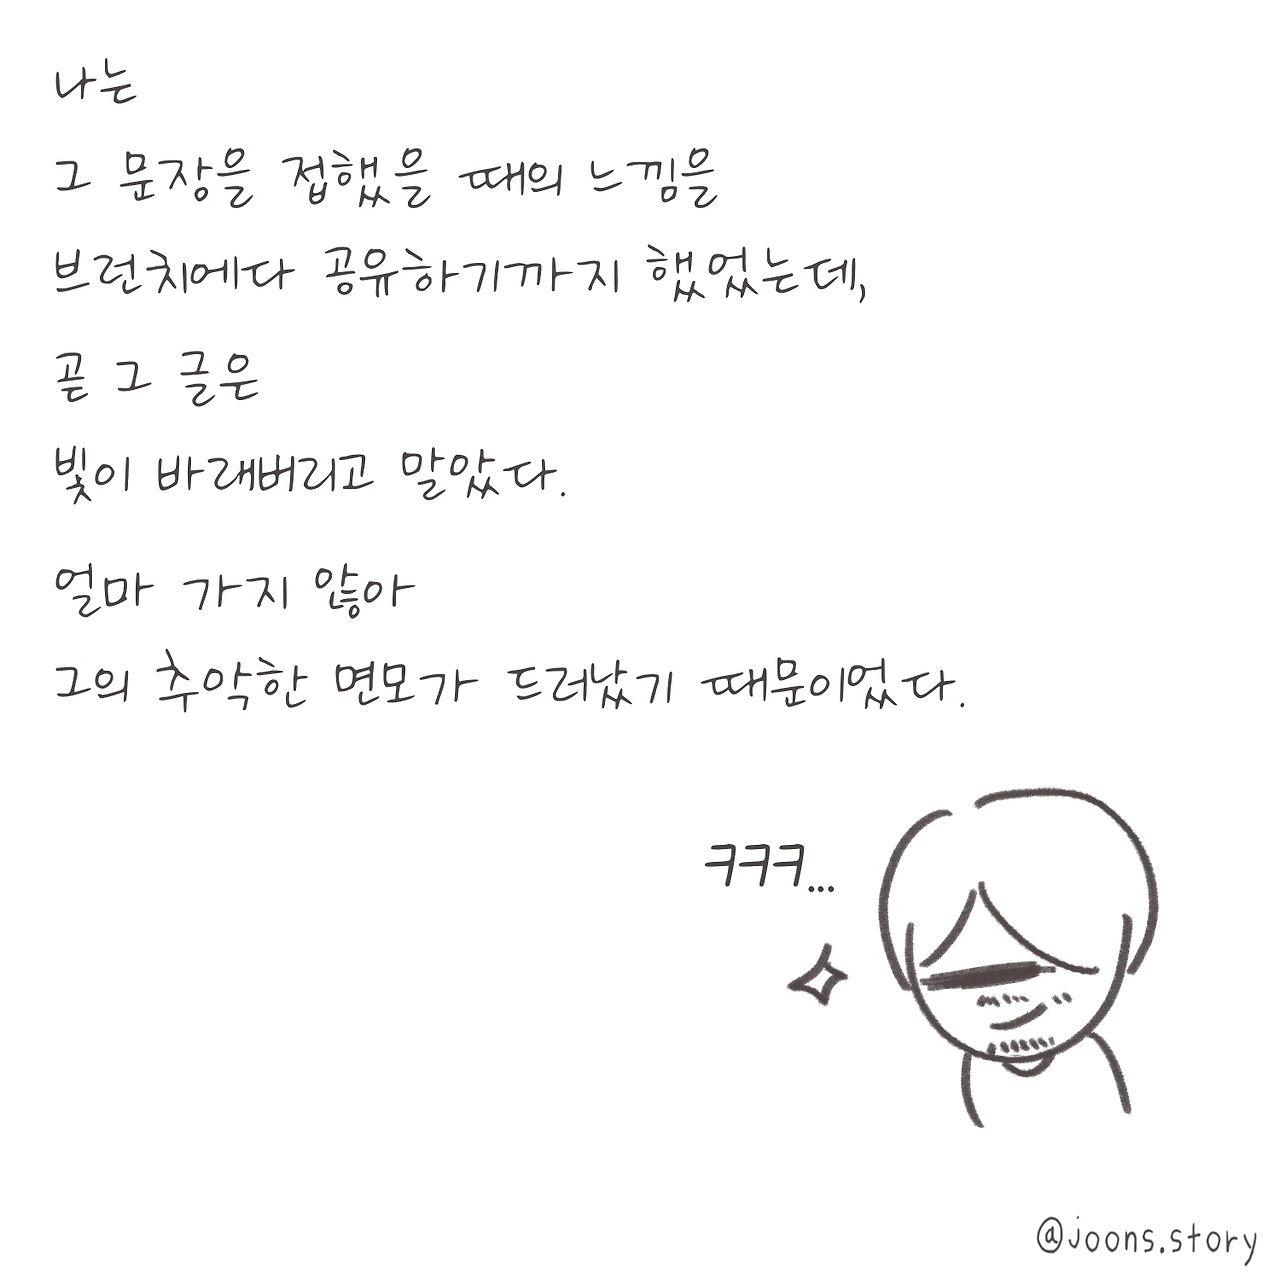 나는
그 문장을 접했을 때의 느낌을
브런치에다 공유하기까지 했었는데,
곧 그 글은
빛이 바래버리고 말았다.
얼마 가지 않아
그의 추악한 면모가 드러났기 때문이었다.
ㅋㅋㅋ...
@joons.story